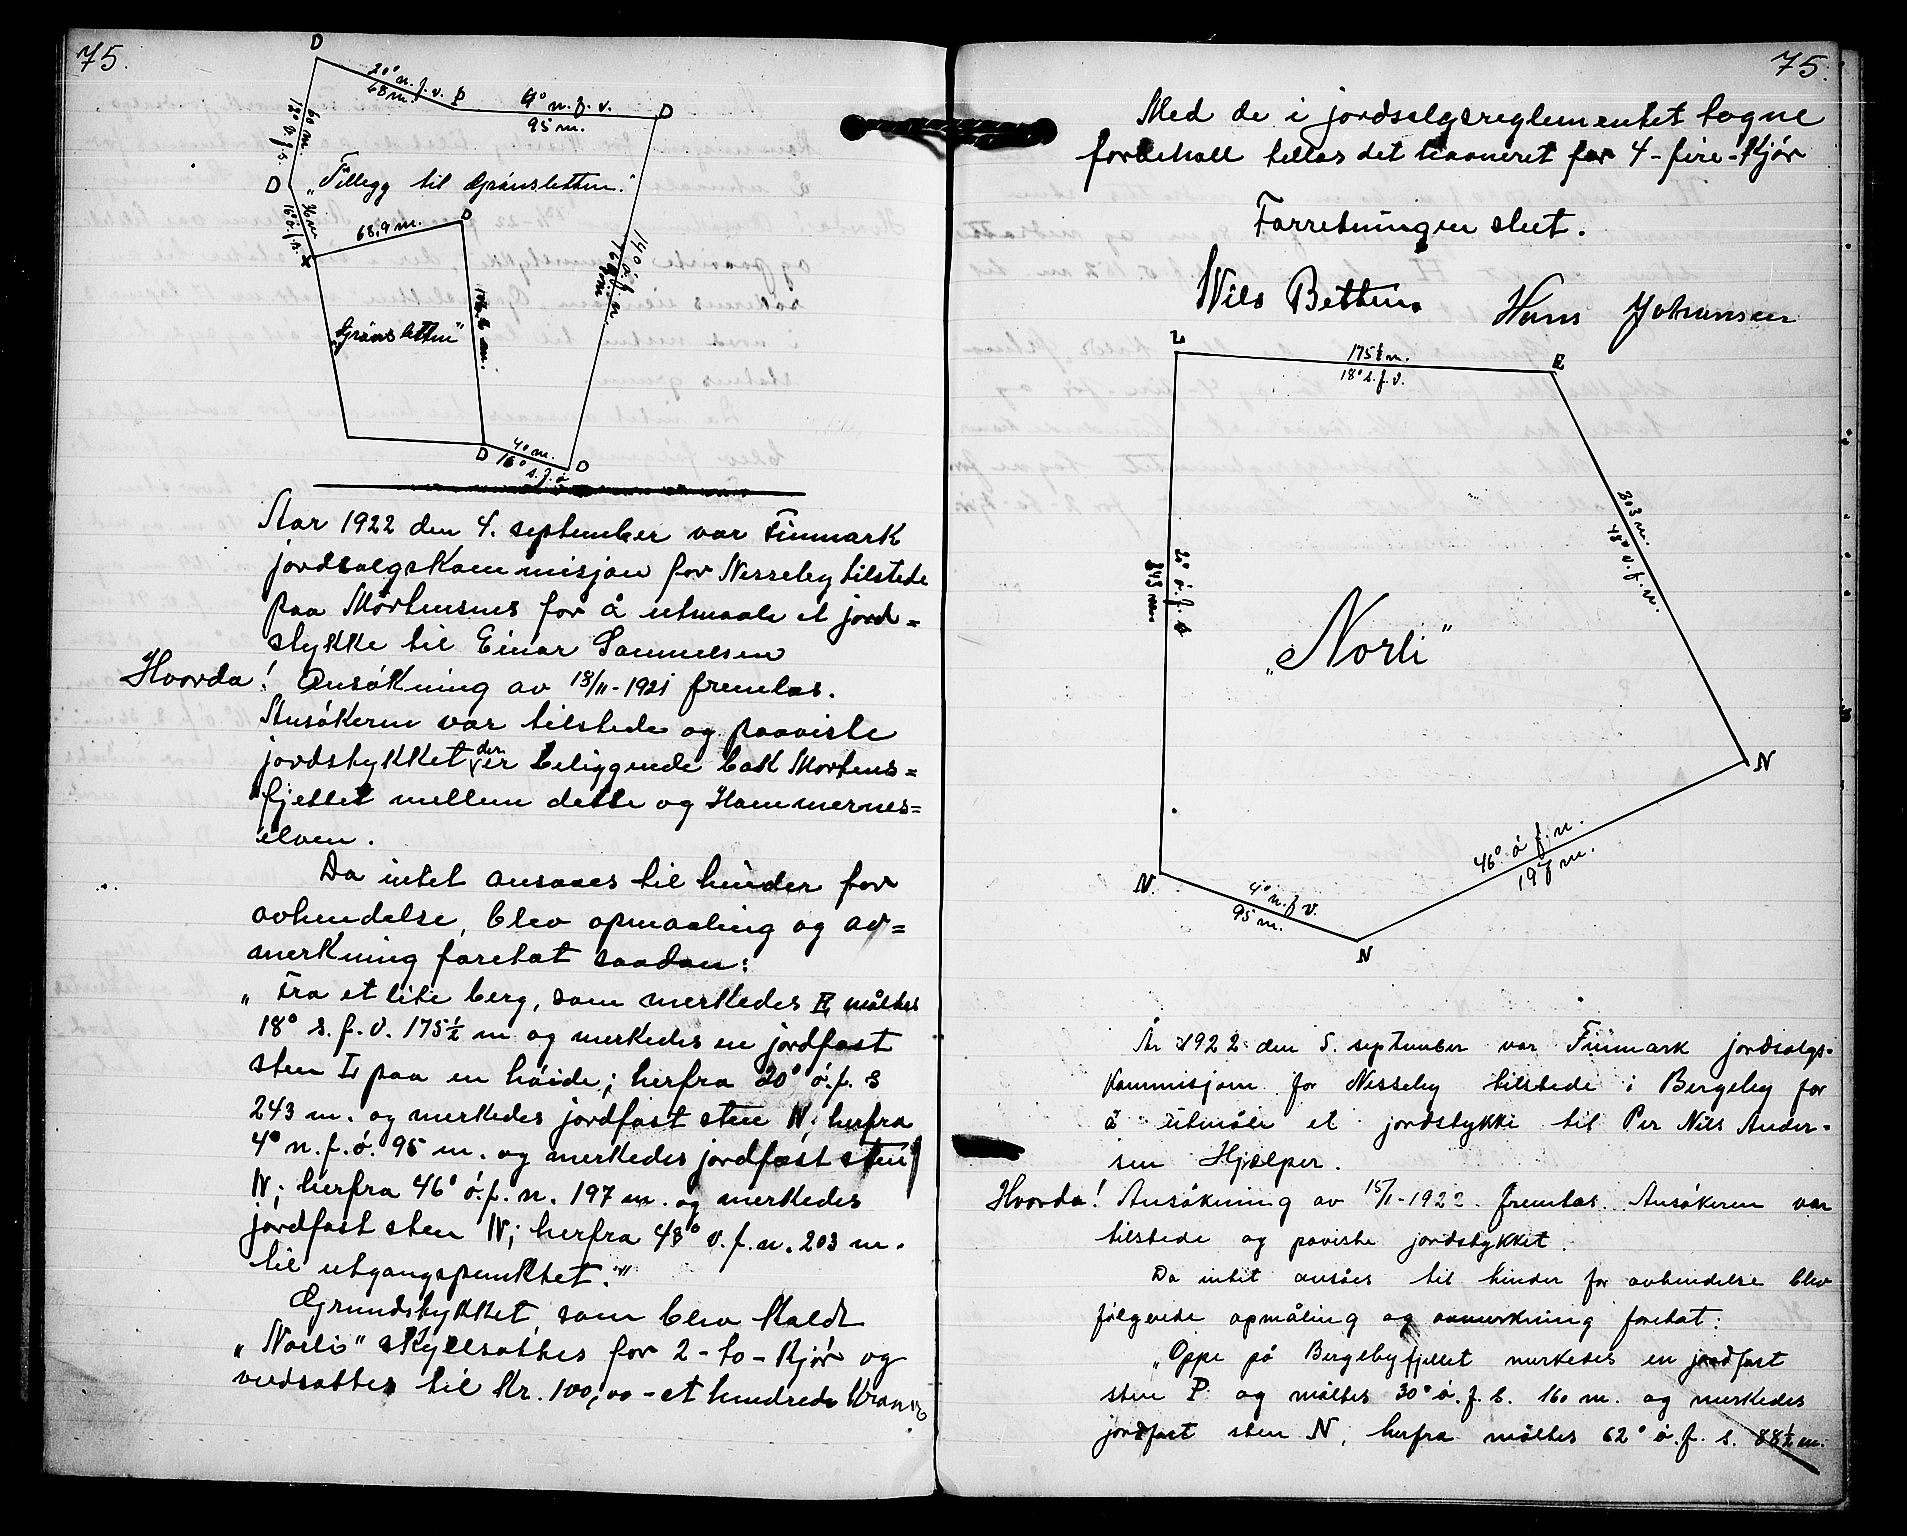 75.
D
20° n.f.v.
68 m.
P
9° n.f.v.
95 m.
D
60 m.
12° ø.f.s.
D
„Tillegg til Grønsletten."
36 m.
16° ø.f.s.
68,9 m.
D
x
14° ø.f.n.
„Grønsletten"
D
40 m.
16° s.f.ø
D
Aar 1922 den 4. september var Finmark
jordsalgskommisjon for Nesseby tilstede
paa Mortensnes for å utmaale et jord=
stykke til Einar Samuelsen
Hvorda! Ansøkning av 18/11-1921 fremlas.
Ansøkeren var tilstede og paaviste
jordstykket der er beliggende bak Mortens=
fjellet mellem dette og Hammernes=
elven.
Da intet ansaaes til hinder for
avhendelse, blev opmaaling og av=
merkning foretat saadan:
„Fra et lite berg, som merkedes E måltes
18° s.f.v. 175½ m og merkedes en jordfast
sten L paa en høide; herfra 20° ø.f.s
243 m. og merkedes jordfast sten N; herfra
4° n.f.ø. 95 m. og merkedes jordfast sten
N; herfra 46° ø.f.n. 197 m. og merkedes
jordfast sten N; herfra 48° v.f.n. 203 m.
til utgangspunktet."
Grundstykket som blev kaldt
„Norli" skyldsattes for 2-to-Kjør og
verdsattes til Kr. 100,00 - et hundrede Kroner
75.
Med de i jordsalgsreglementet tagne
forbehold tillas det leavneret for 4-fire-Kjør
Forretningen slut.
Nils Betten. Hans Johansen
L
175½ m.
18° s.f.v.
E
303 m.
48° v.f.n.
20° ø.f.s
243 m.
„Norli"
N
46° ø.f.n.
197 m.
N.
4° n.f.v.
95 m.
N
År 1922 den 5. september var Finmark jordsalgs-
kommisjon for Nesseby tilstede i Bergeby for
å utmåle et jordstykke til Per Nils Ander-
sen Hjælper.
Hvorda! Ansøkning av 15/1-1922 fremlas. Ansøkeren var
tilstede og påviste jordstykket.
Da intet ansåes til hinder for avhendelse blev
følgende opmåling og avmerkning foretat:
„Oppe på Bergebyfjellet merkedes en jordfast
sten P og måltes 30° ø.f.s. 160 m. og merkedes
jordfast sten N, herfra måltes 62° ø.f.s. 88½ m.